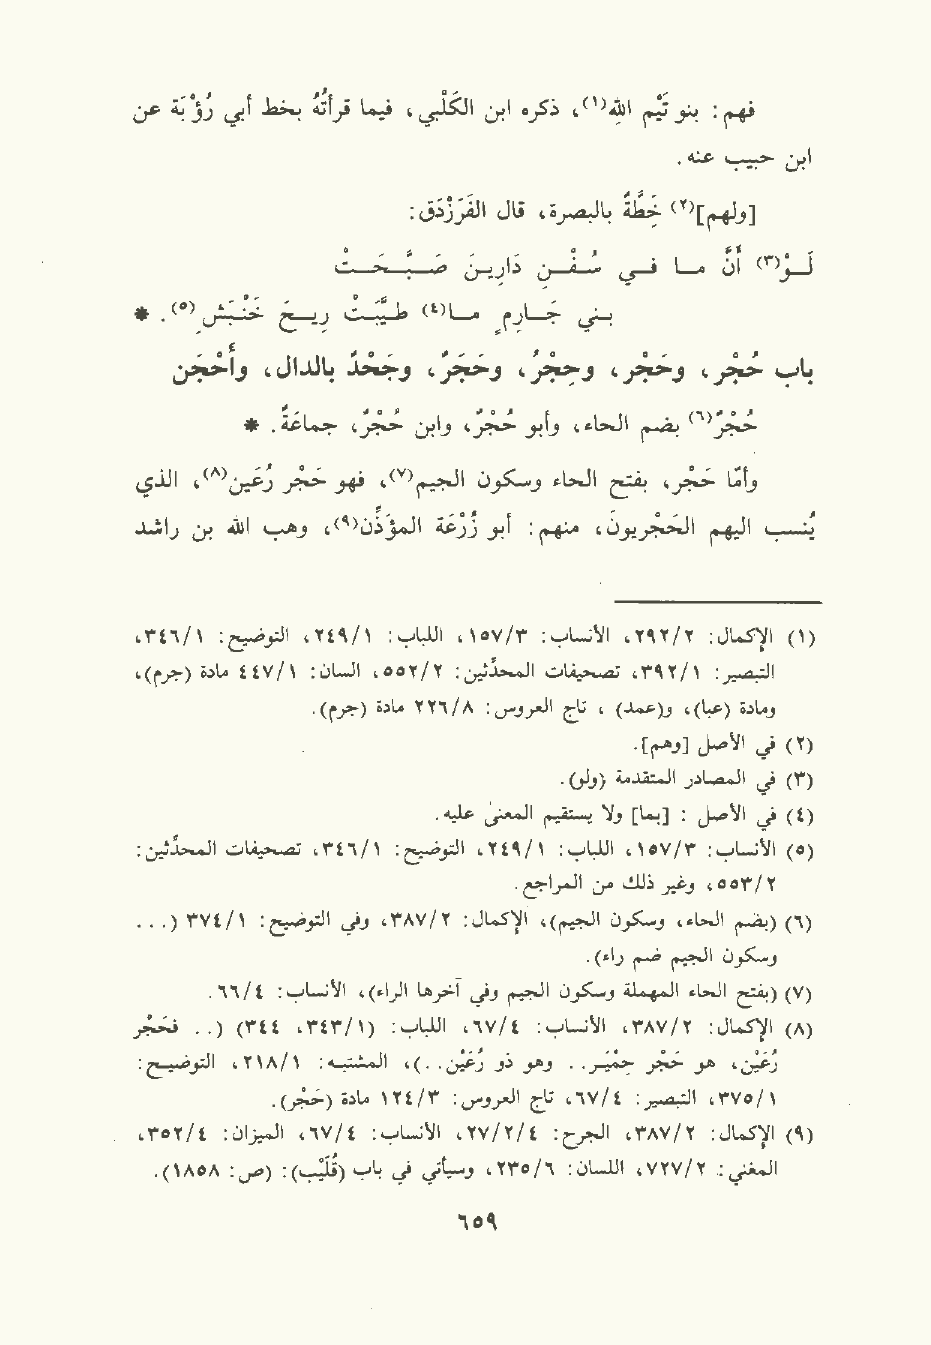 فهم: بنو تَيْمِ اللهِ(١)، ذكره ابن الكَلْبي، فيما قرأتُهُ بخط أبي رُؤْبَة عن
ابن حبيب عنه.
[ولهم](٢) خِطَّةٌ بالبصرة، قال الفَرَزْدَق:
لَـوْ(٣) أَنَّ مـا فـي سُـفـنِ دَارِيـنَ صَـبَّـحَـتْ
بـني جَـارمٍ مـا(٤) طـيَّـبَـتْ رِيـحَ خَنْبَشِ(٥). *
باب حُجْر، وحَجْر، وحِجْرُ، وحَجَرٌ، وجَحْدَرٌ بالدال، وأَحْجَن
حُجْرٌ(٦) بضم الحاء، وأبو حُجْرٍ، وابن حُجْرٍ، جماعَةٌ. *
وأمّا حَجْر، بفتح الحاء وسكون الجيم(٧)، فهو حَجْر رُعَين(٨)، الذي
يُنـسـب اليهم الحَجْريونَ، منهم: أبو زُرْعَة المؤَذِن(٩)، وهب الله بن راشد
(١) الإكمال: ٢٩٢/٢، الأنساب: ١٥٧/٣، اللباب: ٢٤٩/١، التوضيح: ٣٤٦/١،
التبصير: ٣٩٢/١، تصحيفات المحدّثين: ٥٥٢/٢، اللسان: ٤٤٧/١ مادة (جرم)،
ومادة (عبا)، و(عمد) ، تاج العروس: ٢٢٦/٨ مادة (جرم).
(٢) في الأصل [وهم].
(٣) في المصادر المتقدمة {ولو).
(٤) في الأصل : [بما] ولا يستقيم المعنىٰ عليه.
(٥) الأنساب: ١٥٧/٣، اللباب: ٢٤٩/١، التوضيح: ٣٤٦/١، تصحيفات المحدّثين:
٥٥٣/٢، وغير ذلك من المراجع.
(٦) (بضم الحاء، وسكون الجيم)، الإكمال: ٣٨٧/٢، وفي التوضيح: ٣٧٤/١ (...
وسكون الجيم ضم راء).
(٧) (بفتح الحاء المهملة وسكون الجيم وفي آخرها الراء)، الأنساب: ٦٦/٤.
(٨) الإكمال: ٣٨٧/٢، الأنساب: ٦٧/٤، اللباب: (٣٤٣/١، ٣٤٤) (.. فحَجْر
رُعَيْن، هو حَجْر حِمْيَـر.. وهو ذو رُعَيْن..)، المشتبـه: ٢١٨/١، التوضيـح:
٣٧٥/١، التبصير: ٦٧/٤، تاج العروس: ١٢٤/٣ مادة (حَجْر).
(٩) الإكمال: ٣٨٧/٢، الجرح: ٢٧/٢/٤، الأنساب: ٦٧/٤، الميزان: ٣٥٢/٤،
المغني: ٧٢٧/٢، اللسان: ٢٣٥/٦، وسيأتي في باب (قُلَيْب): (ص: ١٨٥٨).
٦٥٩